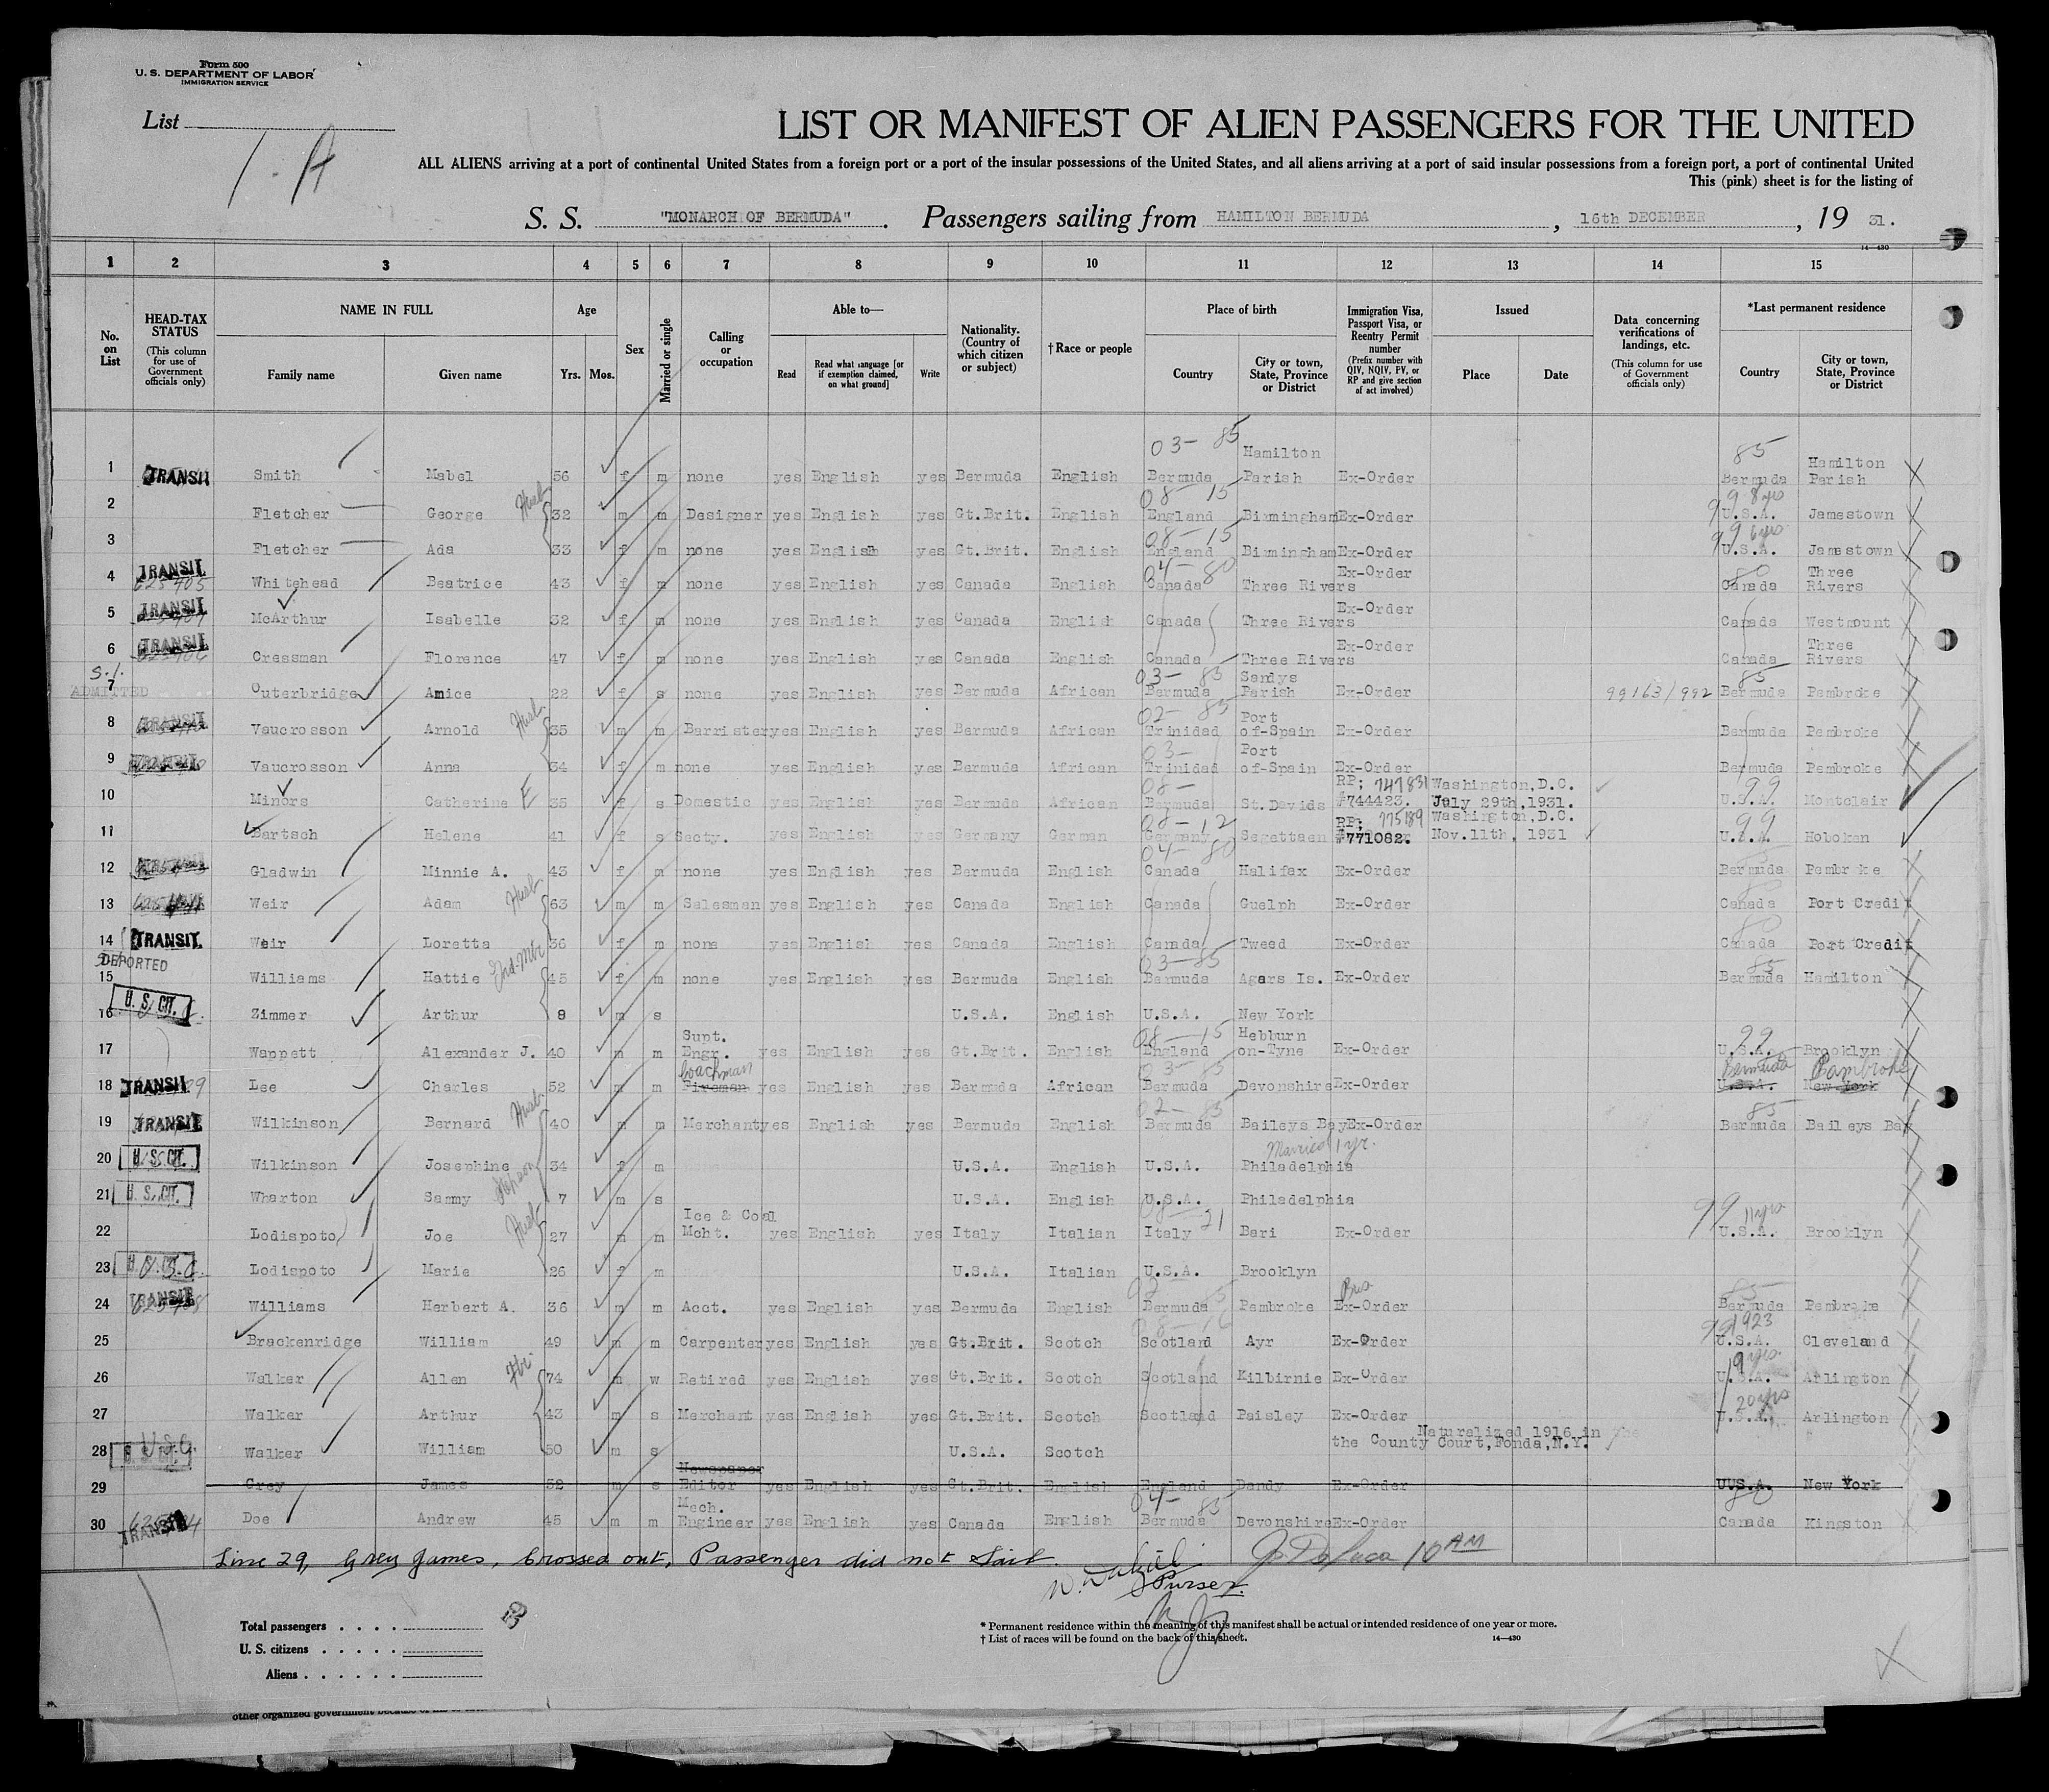 Form 500
U. S. DEPARTMENT OF LABOR
IMMIGRATION SERVICE
List
1-A
LIST OR MANIFEST OF ALIEN PASSENGERS FOR THE UNITED
ALL ALIENS arriving at a port of continental United States from a foreign port or a port of the insular possessions of the United States, and all aliens arriving at a port of said insular possessions from a foreign port, a port of continental United
This (pink) sheet is for the listing of
S. S. "MONARCH OF BERMUDA". Passengers sailing from HAMILTON BERMUDA, 16th DECEMBER, 19 31.
14—430
1 2 3 4 5 6 7 8 9 10 11 12 13 14 15
No. on List
HEAD-TAX STATUS (This column for use of Government officials only)
NAME IN FULL
Family name Given name
Age
Yrs. Mos.
Sex
Married or single
Calling or occupation
Able to—
Read Read what language [or if exemption claimed, on what ground] Write
Nationality. (Country of which citizen or subject)
†Race or people
Place of birth
Country City or town, State, Province or District
Immigration Visa, Passport Visa, or Reentry Permit number (Prefix number with QIV, NQIV, PV, or RP and give section of act involved)
Issued
Place Date
Data concerning verifications of landings, etc. (This column for use of Government officials only)
*Last permanent residence
Country City or town, State, Province or District
03-85 85
1 TRANSIT Smith Mabel 56 f m none yes English yes Bermuda English Bermuda Hamilton Parish Ex-Order Bermuda Hamilton Parish
08-15 99 8yrs
2 Fletcher George Husb 32 m m Designer yes English yes Gt.Brit. English England Birmingham Ex-Order U.S.A. Jamestown
08-15 99 6yrs
3 Fletcher Ada 33 f m none yes English yes Gt.Brit. English England Birmingham Ex-Order U.S.A. Jamestown
04-80 80
4 TRANSIT 625405 Whitehead Beatrice 43 f m none yes English yes Canada English Canada Three Rivers Ex-Order Canada Three Rivers
5 TRANSIT McArthur Isabelle 32 f m none yes English yes Canada English Canada Three Rivers Ex-Order Canada Westmount
6 TRANSIT Cressman Florence 47 f m none yes English yes Canada English Canada Three Rivers Ex-Order Canada Three Rivers
S.I. 03-85 85
7 ADMITTED Outerbridge Amice 22 f s none yes English yes Bermuda African Bermuda Sandys Parish Ex-Order 99163/992 Bermuda Pembroke
02-85
8 TRANSIT Vaucrosson Arnold Husb 35 m m Barrister yes English yes Bermuda African Trinidad Port of-Spain Ex-Order Bermuda Pembroke
03-
9 TRANSIT Vaucrosson Anna 34 f m none yes English yes Bermuda African Trinidad Port of-Spain Ex-Order Bermuda Pembroke
08- 99
10 Minors Catherine E 35 f s Domestic yes English yes Bermuda African Bermuda St.Davids RP; 747831 #744423. Washington,D.C. July 29th,1931. U.S.A. Montclair
08-12 99
11 Bartsch Helene 41 f s Secty. yes English yes Germany German Germany Segettsen RP; 775189 #771082. Washington,D.C. Nov.11th, 1931 U.S.A. Hoboken
04-80
12 Gladwin Minnie A. 43 f m none yes English yes Bermuda English Canada Halifax Ex-Order Bermuda Pembroke
13 Weir Adam Husb 63 m m Salesman yes English yes Canada English Canada Guelph Ex-Order Canada Port Credit
14 TRANSIT Weir Loretta 36 f m none yes English yes Canada English Canada Tweed Ex-Order Canada Port Credit
DEPORTED 03-85 85
15 Williams Hattie 45 f m none yes English yes Bermuda English Bermuda Agars Is. Ex-Order Bermuda Hamilton
16 U. S. CIT. Zimmer Arthur 8 m s U.S.A. English U.S.A. New York
08-15 99
17 Wappett Alexander J. 40 m m Supt. Engr. yes English yes Gt.Brit. English England Hebburn on-Tyne Ex-Order U.S.A. Brooklyn
Coachman 03-85 Bermuda Pembroke
18 TRANSIT Lee Charles 52 m m Fireman yes English yes Bermuda African Bermuda Devonshire Ex-Order U.S.A. New York
02-85 85
19 TRANSIT Wilkinson Bernard Husb 40 m m Merchant yes English yes Bermuda English Bermuda Baileys Bay Ex-Order Bermuda Baileys Bay
Married 1 yr.
20 U. S. CIT. Wilkinson Josephine 34 f m U.S.A. English U.S.A. Philadelphia
21 U. S. CIT. Wharton Sammy Stepson 7 m s U.S.A. English U.S.A. Philadelphia
08-21 99 11yrs
22 Lodispoto Joe Husb 27 m m Ice & Coal Mcht. yes English yes Italy Italian Italy Bari Ex-Order U.S.A. Brooklyn
23 U. S. CIT. Lodispoto Marie 26 f m U.S.A. Italian U.S.A. Brooklyn
Bus 85
24 TRANSIT Williams Herbert A. 36 m m Acct. yes English yes Bermuda English Bermuda Pembroke Ex-Order Bermuda Pembroke
08-16 99 1923
25 Brackenridge William 49 m m Carpenter yes English yes Gt.Brit. Scotch Scotland Ayr Ex-Order U.S.A. Cleveland
9 yrs.
26 Walker Allen 74 m w Retired yes English yes Gt.Brit. Scotch Scotland Kilbirnie Ex-Order U.S.A. Arlington
20 yrs
27 Walker Arthur 43 m s Merchant yes English yes Gt.Brit. Scotch Scotland Paisley Ex-Order U.S.A. Arlington
28 U.S.C. Walker William 50 m s U.S.A. Scotch Naturalized 1916 in the the County Court,Fonda,N.Y.
29 Grey James 52 m s Newspaper Editor yes English yes Gt.Brit. English England Dandy Ex-Order U.S.A. New York
04-85 80
30 TRANSIT Doe Andrew 45 m m Mech. Engineer yes English yes Canada English Bermuda Devonshire Ex-Order Canada Kingston
Line 29, Grey James, Crossed out, Passenger did not sail. 10 AM
Purser.
Total passengers
U. S. citizens
Aliens
* Permanent residence within the meaning of this manifest shall be actual or intended residence of one year or more.
† List of races will be found on the back of this sheet.
14—430